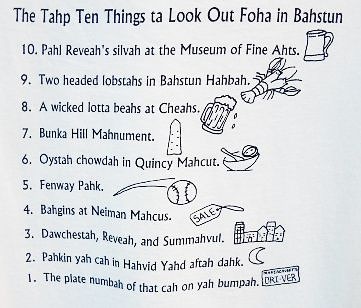 The Tahp Ten Things ta Look Out Foha in Bahstun
10. Pahl Reveah's silvah at the Museum of Fine Ahts.
9. Two headed lobstahs in Bahstun Hahbah.
8. A wicked lotta beahs at Cheahs.
7. Bunka Hill Mahnument.
6. Oystah chowdah in Quincy Mahcut.
5. Fenway Pahk.
4. Bahgins at Neiman Mahcus.
SALE
3. Dawchestah, Reveah, and Summahvul.
2. Pahkin yah cah in Hahvid Yahd aftah dahk.
1. The plate numbah of that cah on yah bumpah.
MASSACHUSETTS
DRI-VER